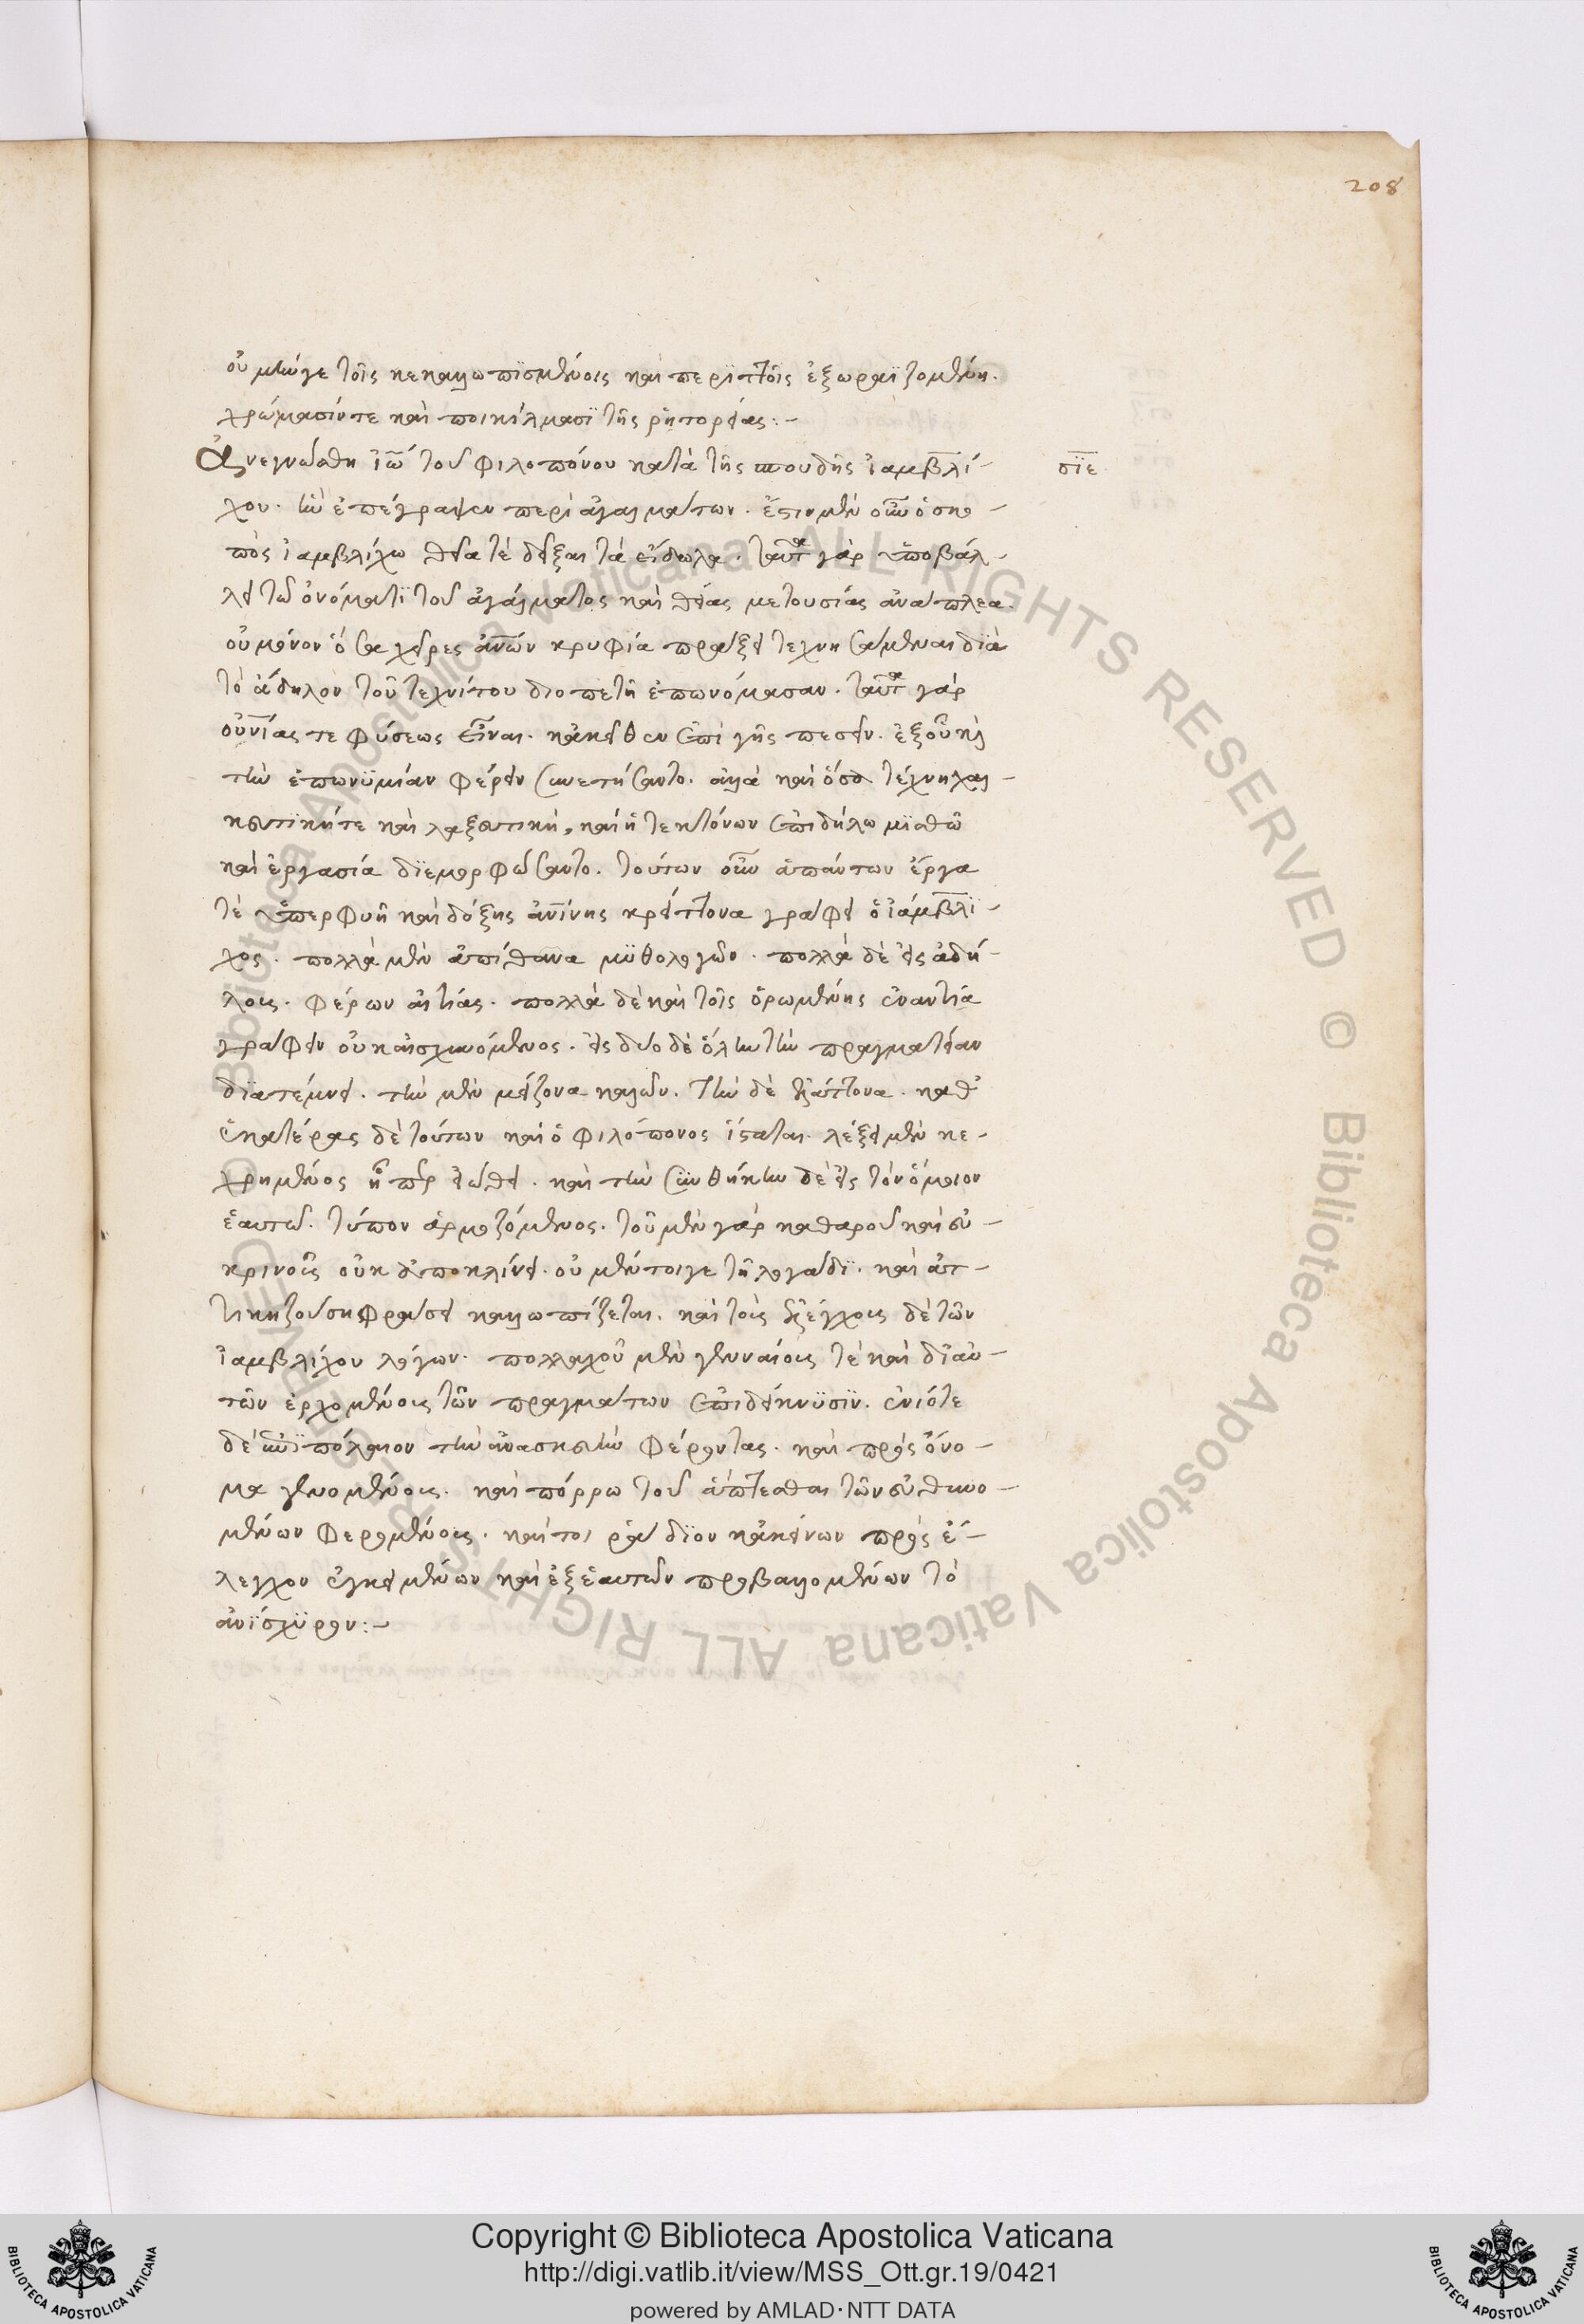 208
οὐ μὴν γε τοῖς κεκαλλωπϊσμένοις καὶ περϊττοῖς ἐξωραϊζομένη.
χρώμασίν τε καὶ ποικίλμασϊ τῆς ῥητορείας:-
Ἀνεγνώσθη ἰῶ τοῦ φιλοπόνου κατὰ τῆς σπουδῆς ἰαμβλί-
σϊε
χου. ἣν ἐπέγραψεν περὶ ἀγαλμάτων. ἔστιν μὲν οὖν ὁ σκο-
πὸς ἰαμβλίχω θεῖα τὲ δεῖξαι τὰ εἴδωλα. ταῦτα γὰρ ὑποβάλ-
λει τῶ ὀνόματϊ τοῦ ἀγάλματος καὶ θείας μετουσίας ἀνάπλεα.
οὐ μόνον ὅσα χεῖρες ἀνων κρυφία πράξει τεχνησάμεναι δϊὰ
τὸ ἄδηλον τοῦ τεχνίτου διοπετῆ ἐπωνόμασαν. ταῦτα γὰρ
οὐνίας τε φύσεως εἶναι. κἀκεῖθεν ἐπὶ γῆς πεσεῖν. ἐξ οὗ καὶ
τὴν ἐπωνϋμίαν φέρειν συνεστήσαντο. ἀλλὰ καὶ ὅσα τέχνη χαλ-
κευτϊκή τε καὶ λαξευτικὴ, καὶ ἡ τεκτόνων ἐπὶ δήλω μϊσθῶ
καὶ ἐργασία δϊεμορφώσαντο. τούτων οὖν ἁπάντων ἔργα
τὲ ὑπερφυῆ καὶ δόξης ἀνίνης κρείττονα γράφει ὁ ἰάμβλϊ-
χος. πολλὰ μὲν ἀπίθανα μϋθολογῶν. πολλὰ δὲ εἰς ἀδή-
λους. φέρων αἰτίας. πολλὰ δὲ καὶ τοῖς ὁρωμένης ἐναντία
γράφειν οὐκ αἰσχυνόμενος. εἰς δύο δὲ ὅλην τὴν πραγματείαν
δϊατέμνει. τὴν μὲν μείζονα καλῶν. τὴν δὲ ἐλάττονα. καθ᾽
ἑκατέρας δὲ τούτων καὶ ὁ φιλόπονος ἵσταται. λέξει μὲν κε-
χρημένος ἧπερ εἴωθει. καὶ τὴν συνθήκην δὲ εἰς τὸν ὅμοιον
ἑαυτῶ. τύπον ἁρμοζόμενος. τοῦ μὲν γὰρ καθαροῦ καὶ εὐ-
κρινοῦς οὐκ ἀποκλίνει. οὐ μέντοιγε τῆ λογάδϊ. καὶ ἀτ-
τικηζούση φράσει καλλωπίζεται. καὶ τοῖς ἐλέγχοις δὲ τῶν
ἰαμβλίχου λόγων. πολλαχοῦ μὲν γενναίοις τὲ καὶ δϊαυ-
τῶν ἐρχομένοις τῶν πραγμάτων ἐπιδείκνϋσϊν. ἐνίοτε
δὲ ἐπϊπόλαιον τὴν ἀνασκευὴν φέροντας. καὶ πρὸς ὄνο-
μα γενομένοις. καὶ πόρρω τοῦ ἅπτεσθαι τῶν εὐθυνο-
μένων φερομένοις. καίτοι ῥάδϊον κἀκείνων πρὸς ἔ-
λεγχον ἐγκειμένων καὶ ἐξ ἑαυτῶν προβαλλομένων τὸ
ἀνϊσχϋρον:-
Copyright © Biblioteca Apostolica Vaticana
http://digi.vatlib.it/view/MSS_Ott.gr.19/0421
powered by AMLAD·NTT DATA